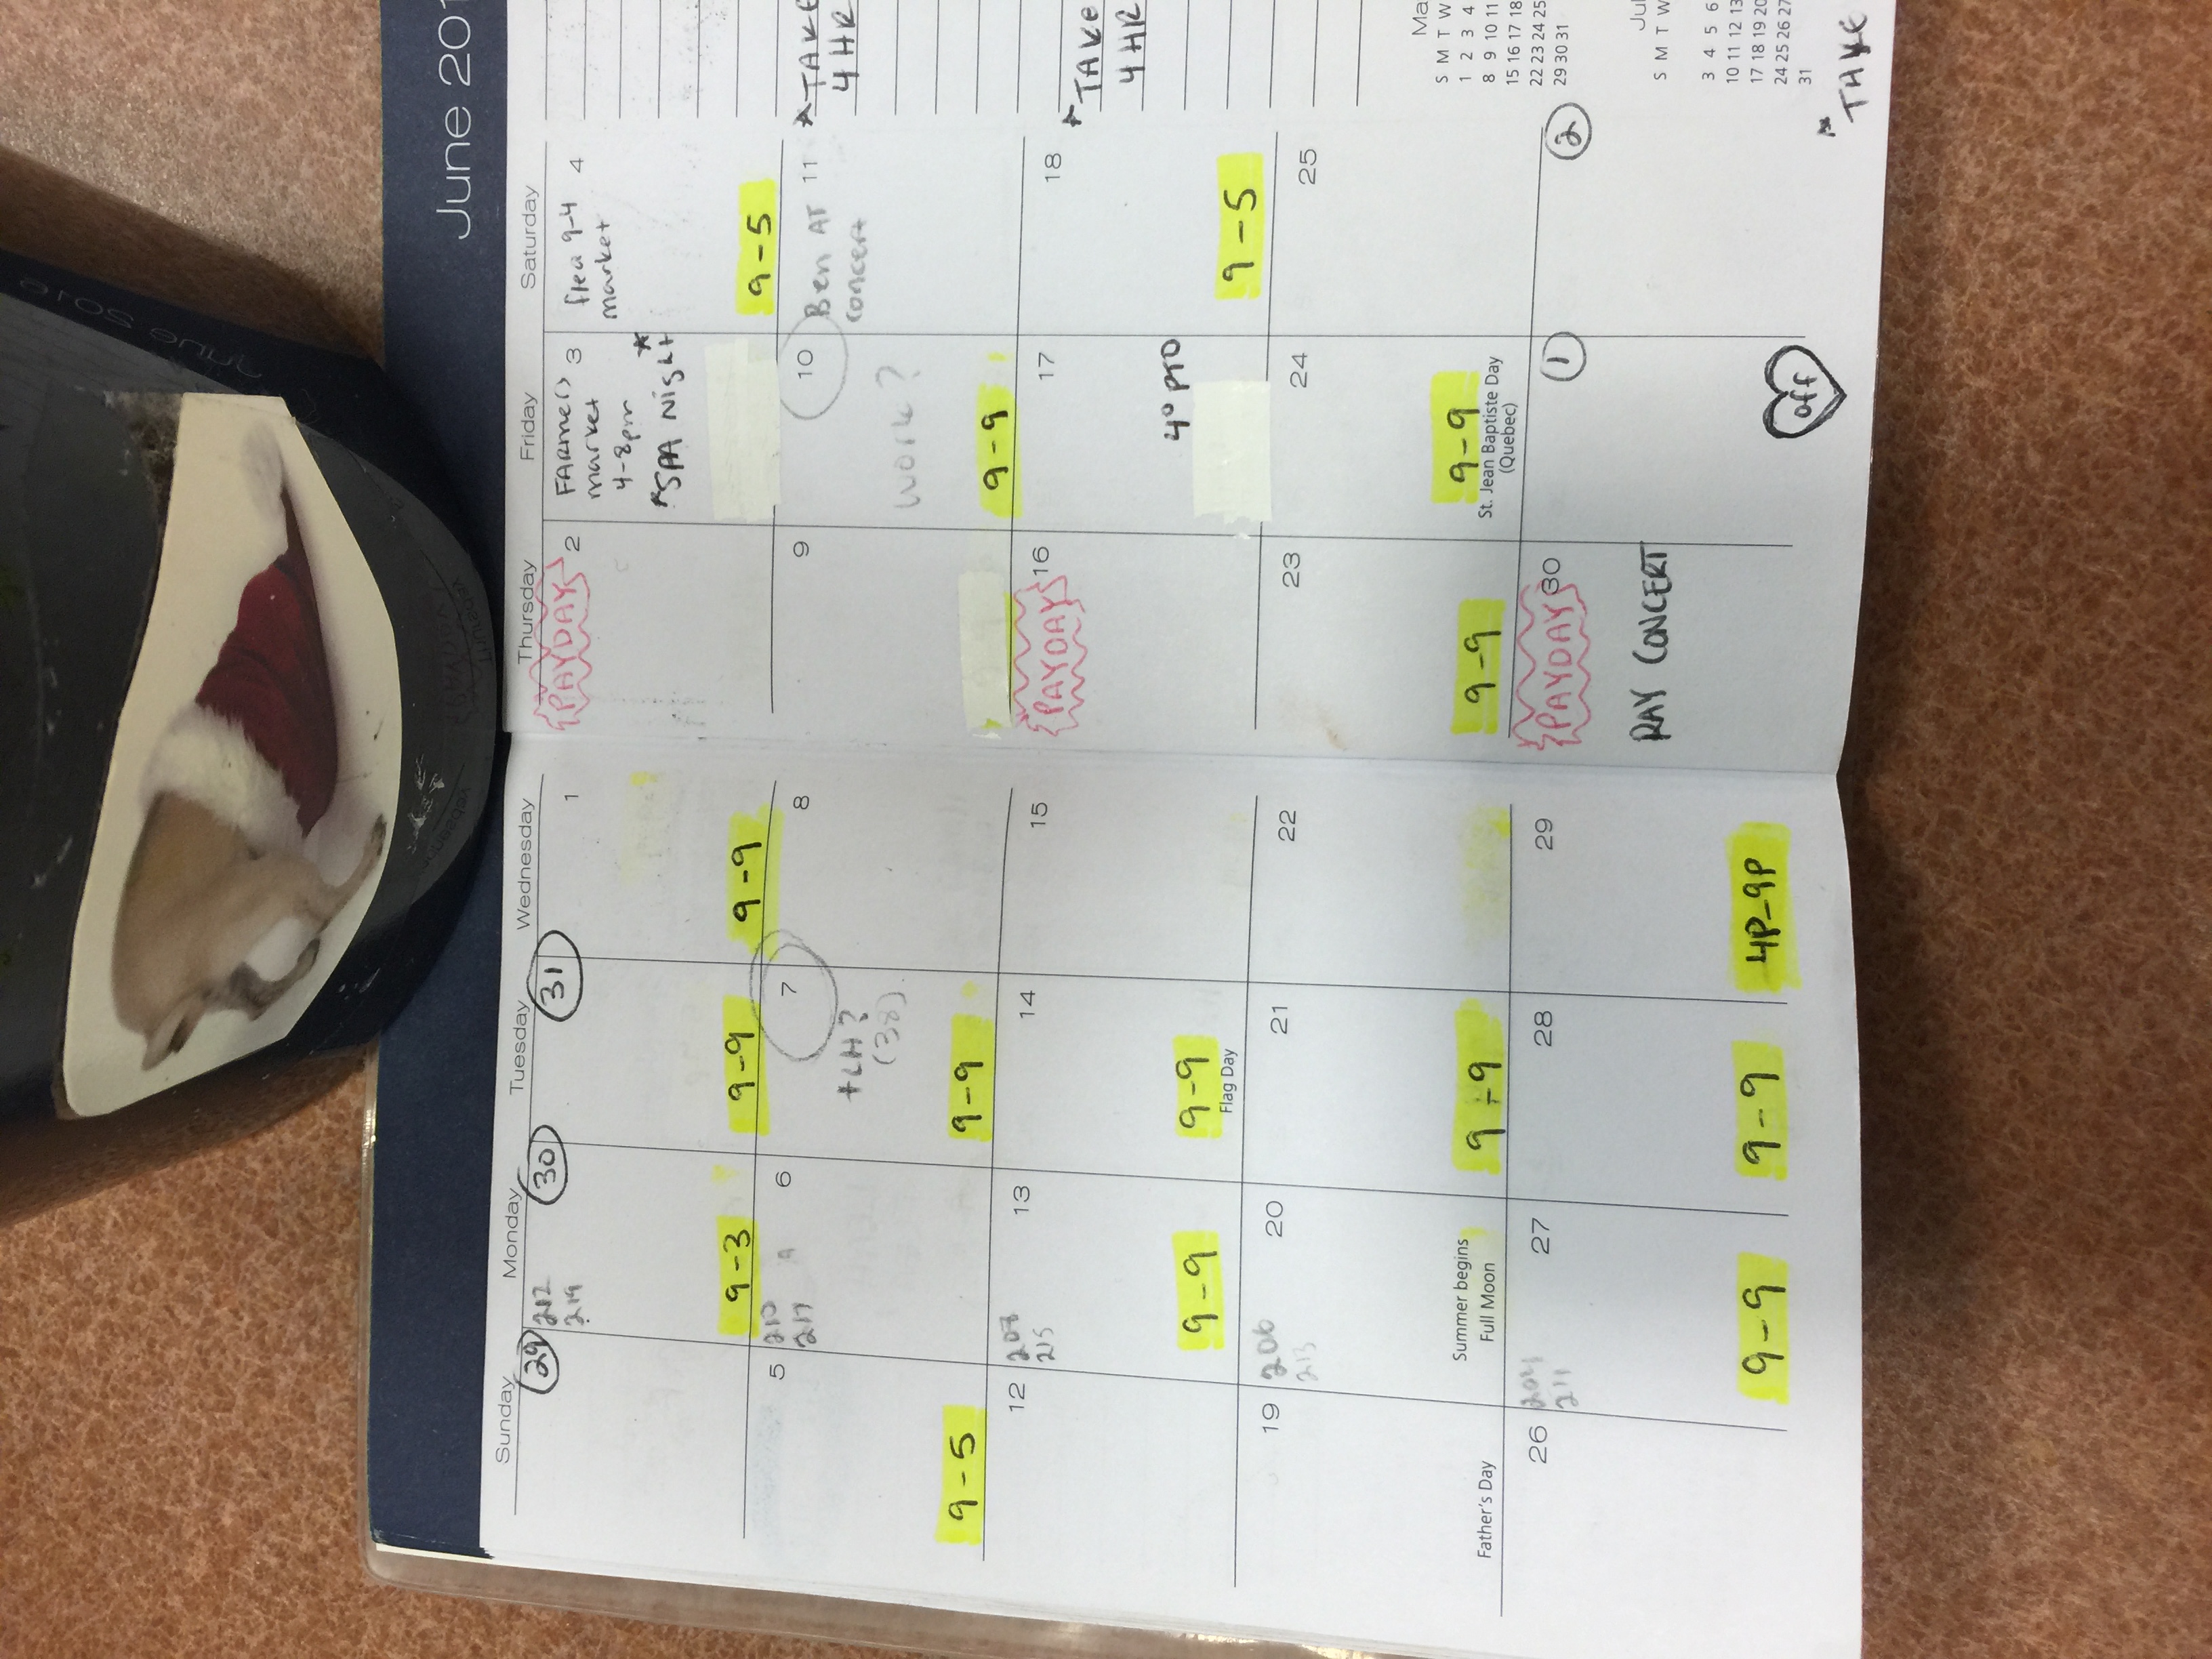 June 201
Sunday Monday Tuesday Wednesday Thursday Friday Saturday
29
212
219
30
31
1
9-3
9-9
9-9
PAYDAY
2
FARMers 3
market
4-8pm
*SPA Night*
flea 9-4 4
market
9-5
5
210
217
6
7
+LH?
(38)
8
9-5
9-9
9
10
work?
9-9
Ben AT 11
concert
*TAKE
4 HR
12
208
215
13
14
15
9-9
9-9
Flag Day
PAYDAY 16
17
4º PTO
18
9-5
*TAKE
4 HR
19
206
213
20
21
22
Father's Day
Summer begins
Full Moon
9-9
23
9-9
24
9-9
St. Jean Baptiste Day
(Quebec)
25
26
204
211
27
28
29
9-9
9-9
4P-9P
PAYDAY 30
RAY CONCERT
1
off
2
Ma
S M T W
1 2 3 4
8 9 10 11
15 16 17 18
22 23 24 25
29 30 31
Jul
S M T W
3 4 5 6
10 11 12 13
17 18 19 20
24 25 26 27
31
*TAKE